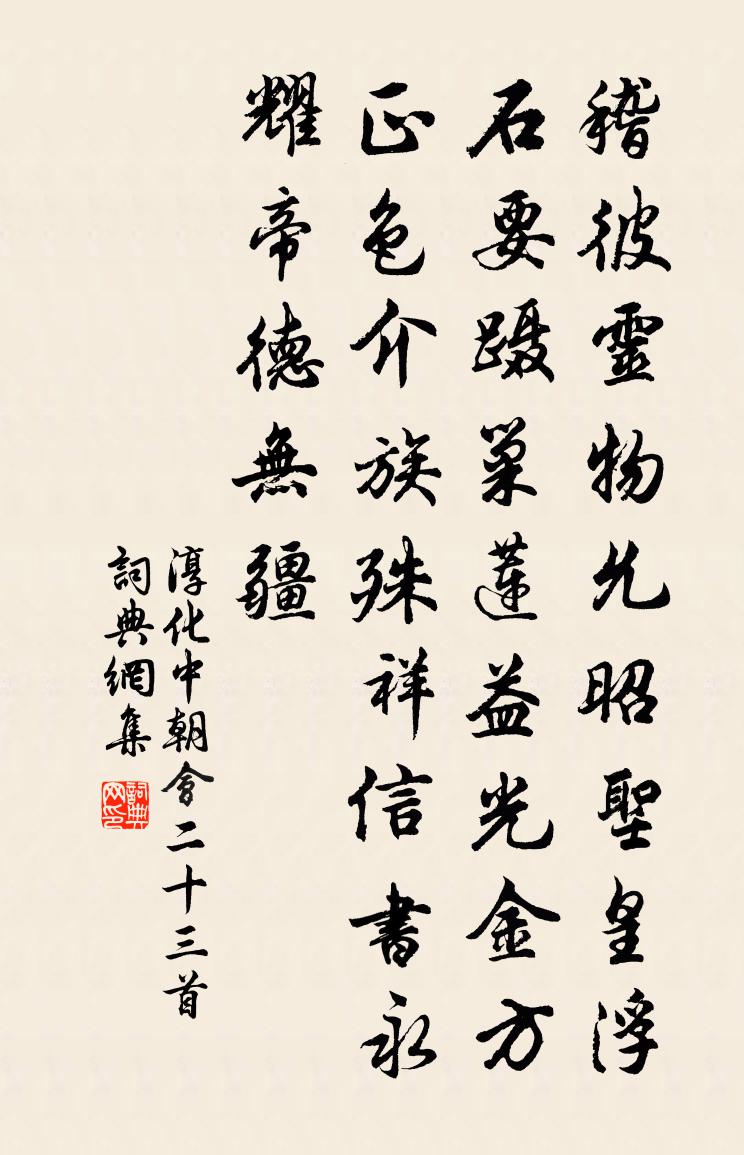 稽彼靈物允昭聖皇浮
石要蹑巢蓮益光金方
正色介族殊祥信書永
耀帝德無疆
淳化中朝會二十三首
詞典網集
詞典网印